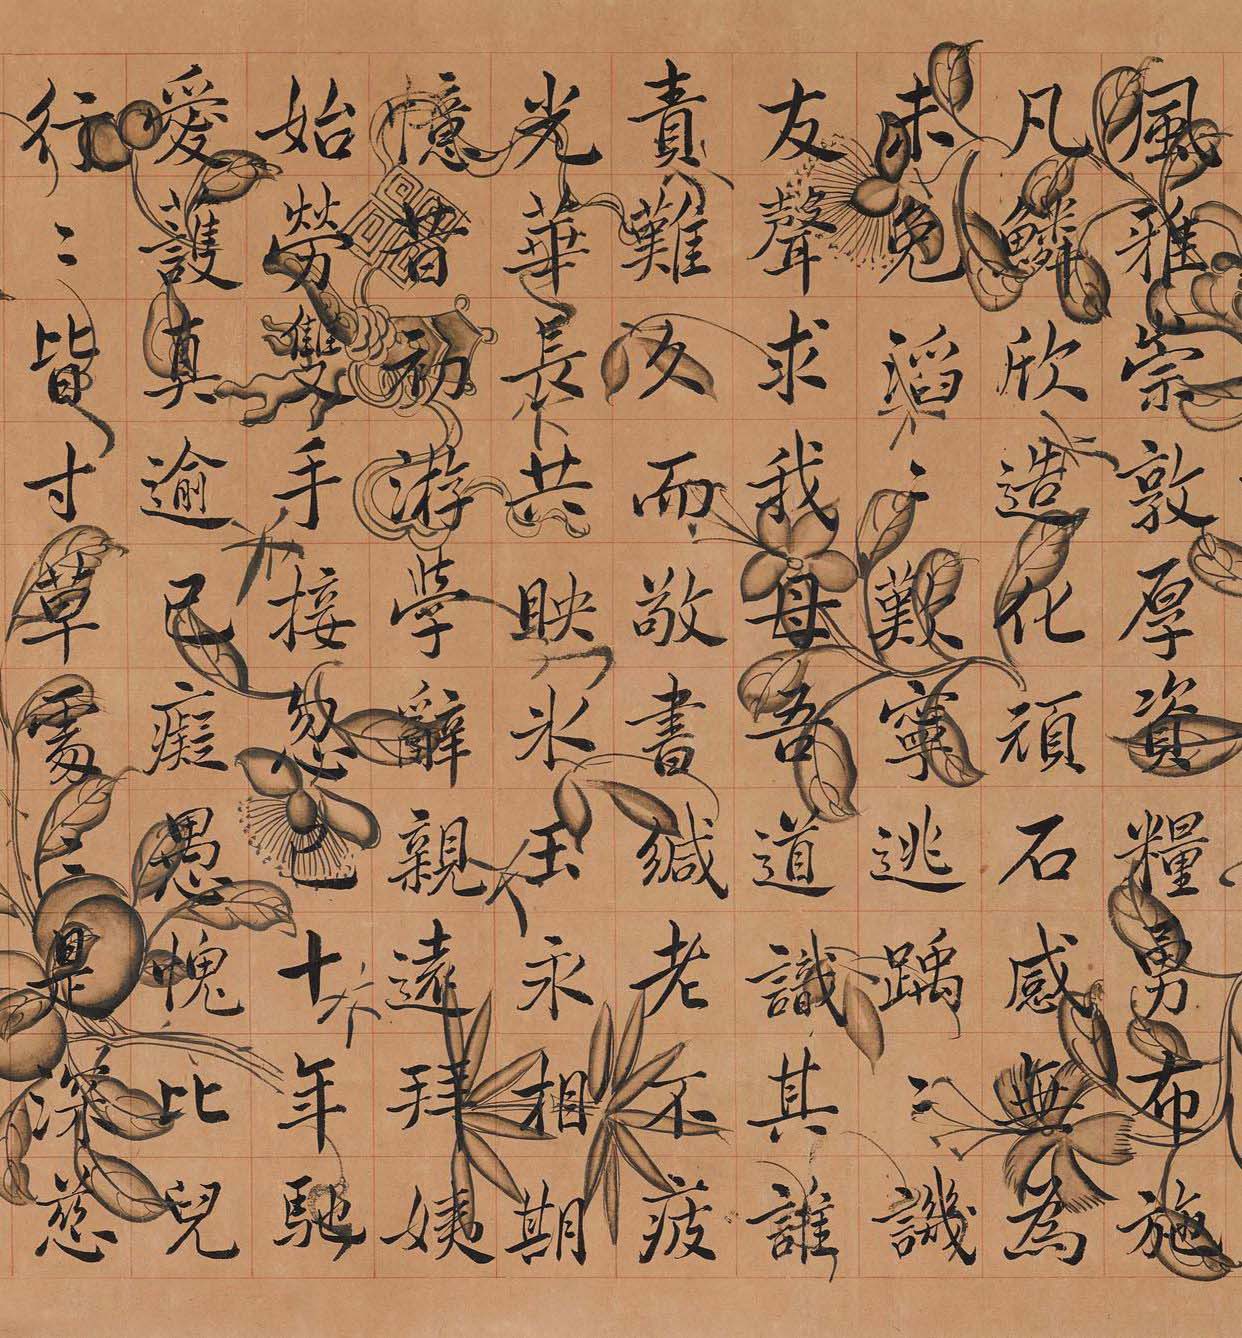 風雅崇敦厚資糧勇布施
凡鱗欣造化頑石感無為
未免滔〻歎寧逃踽〻譏
友聲求我母吾道識其誰
責難久而敬書緘老不疲
光華長共映氷玉永相期
憶昔初游學辭親遠拜姨
始勞雙手接怱已十年馳
愛護真逾己癡愚愧比兒
行〻皆寸草處〻是深慈